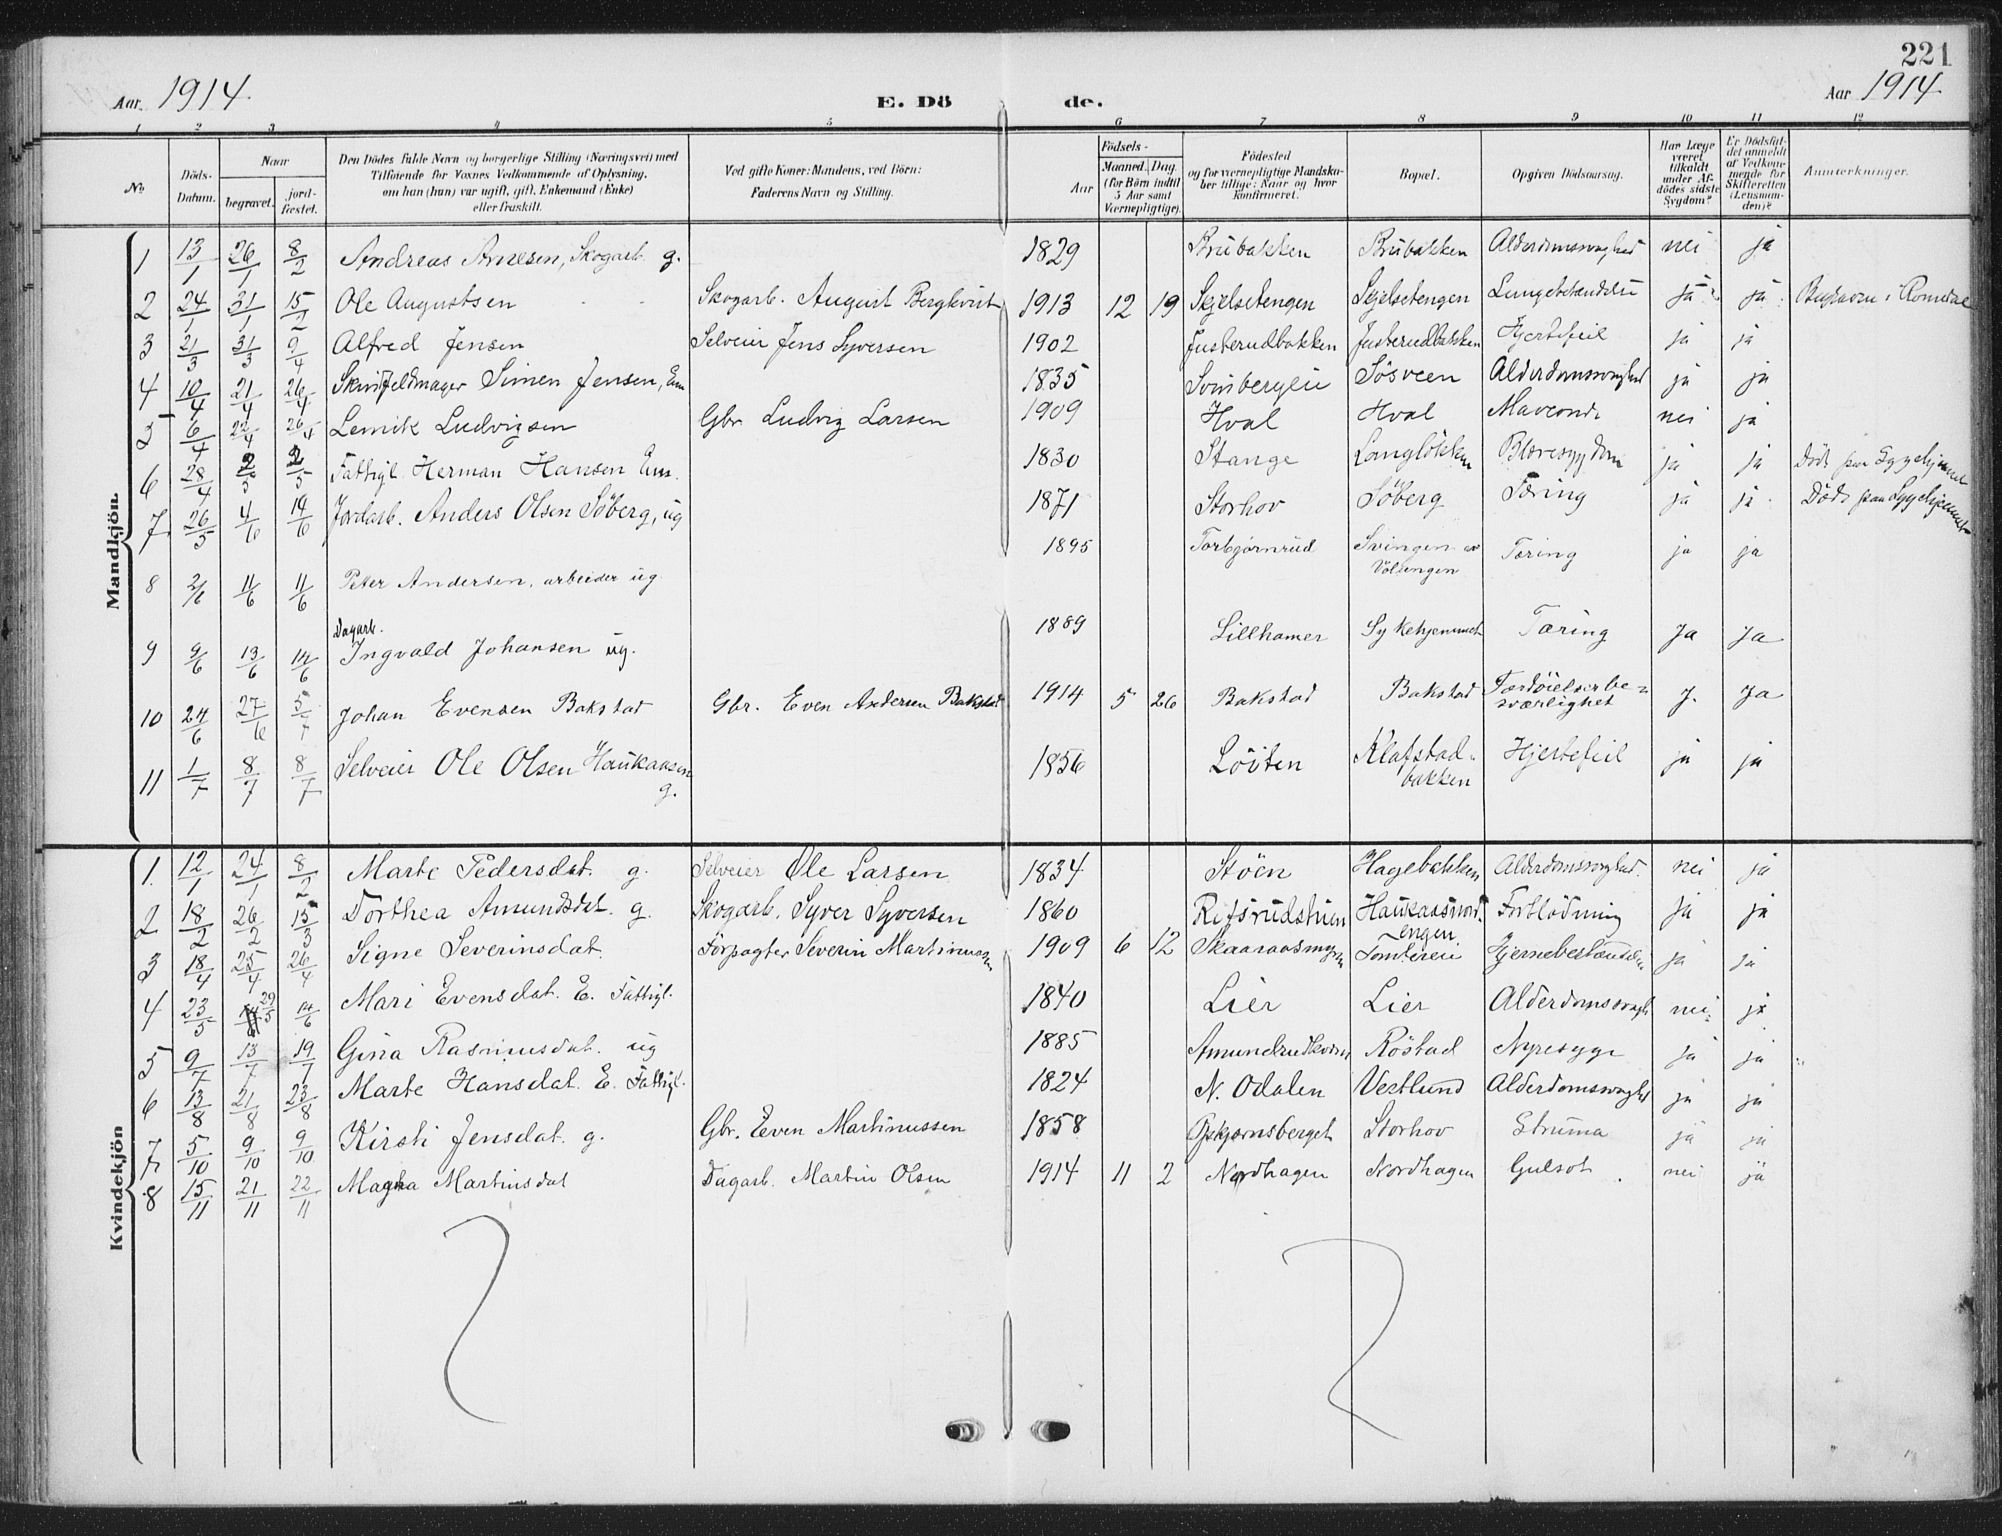 221
Aar. 1914.
E. Döde.
Aar 1914
1 2 3 4 5 6 7 8 9 10 11 12
No
Döds-Datum.
Naar begravet. jordfæstet.
Den Dödes fulde Navn og borgerlige Stilling (Næringsvei) med Tilföiende for Voxnes Vedkommende af Oplysning, om han (hun) var ugift, gift, Enkemand (Enke) eller fraskilt.
Ved gifte Koner: Mandens, ved Börn: Faderens Navn og Stilling.
Födsels- Aar Maaned. Dag (for Börn indtil 5 Aar samt Værnepligtige).
Födested og for værnepligtige Mandskaber tillige: Naar og hvor konfirmeret.
Bopæl.
Opgiven Dödsaarsag.
Har Læge været tilkaldt under Afdödes sidste Sygdom?
Er Dödsfaldet anmeldt af Vedkommende for Skifteretten (Lensmanden)?
Anmærkninger.
Mandkjön.
1 13/1 26/1 8/2 Andreas Arnesen, Skogarb. g. 1829 Brubakken Brubakken Alderdomssvaghed nei ja
2 24/1 31/1 15/2 Ole Augustsen Skogarb. August Bergkvist 1913 12 19 Skjelsetengen Skjelsetengen Lungebetændelse ja ja Begraven i Romedal
3 21/3 31/3 9/4 Alfred Jensen Selveier Jens Syversen 1902 Justerudbakken Justerudbakken Hjertefeil ja ja
4 10/4 21/4 26/4 Skindfeldmager Simen Jensen, Em 1835 Sösveen Alderdomssvaghed ja ja
5 6/4 22/4 26/4 Lemik Ludvigsen Gbr Ludvig Larsen 1909 Hval Hval Maveonde nei ja
6 28/4 2/5 2/5 Fattigl. Herman Hansen Em. 1830 Stange Langlökken Blæresygdom ja ja Död paa Sygehjemmet
7 26/5 4/6 14/6 Jordarb. Anders Olsen Söberg, ug 1871 Storhov Söberg Tæring ja ja Död paa Sygehjemmet
8 2/6 11/6 11/6 Peter Andersen, arbeider ug 1895 Torbjörnrud Svingen Volungen Tæring ja ja
9 9/6 13/6 14/6 Dagarb. Ingvald Johansen ug. 1889 Lillhamer Sykehjemmet Tæring Ja Ja
10 24/6 27/6 5/7 Johan Evensen Bakstad Gbr. Even Andersen Bakstad 1914 5 26 Bakstad Bakstad Fordöielsesbesværlighet J. Ja
11 1/7 8/7 8/7 Selveier Ole Olsen Haukaasen g. 1856 Löiten Klafstadbakken Hjertefeil ja ja
Kvindekjön
1. 12/1 24/1 8/2 Marte Pedersdat. g. Selveier Ole Larsen 1834 Stöen Hagebakken Alderdomssvaghed. nei ja
2 18/2 26/2 15/3 Dorthea Amundsdat. g. Skogarb. Syver Syversen 1860 Rifsrudstuen Haukaasnordengen Forblödning ja ja
3 18/4 25/4 26/4 Signe Severinsdat. Forpagter Severin Martinussen 1909 6 12 Skaaraasmyren Tomtereie Hjernebetændelse ja ja
4 23/5 29/5 14/6 Mari Evensdat. E. Fattigl. 1840 Lier Lier Alderdomssvagh nei ja
5 9/7 13/7 19/7 Gina Rasmusdat. ug 1885 Amundrudkvern Röstad Nyresyge ja ja
6 13/8 21/8 23/8 Marte Hansdat. E. Fattigl. 1824 N. Odalen Vestlund Alderdomssvaghed ja ja
7 5/10 9/10 9/10 Kirsti Jensdat. g. Gbr. Even Martinussen 1858 Opkjernsberget Storhov Struma ja ja
8 15/11 21/11 22/11 Magna Martinsdat Dagarb. Martin Olsen 1914 11 2 Nordhagen Nordhagen Gulsot nei ja